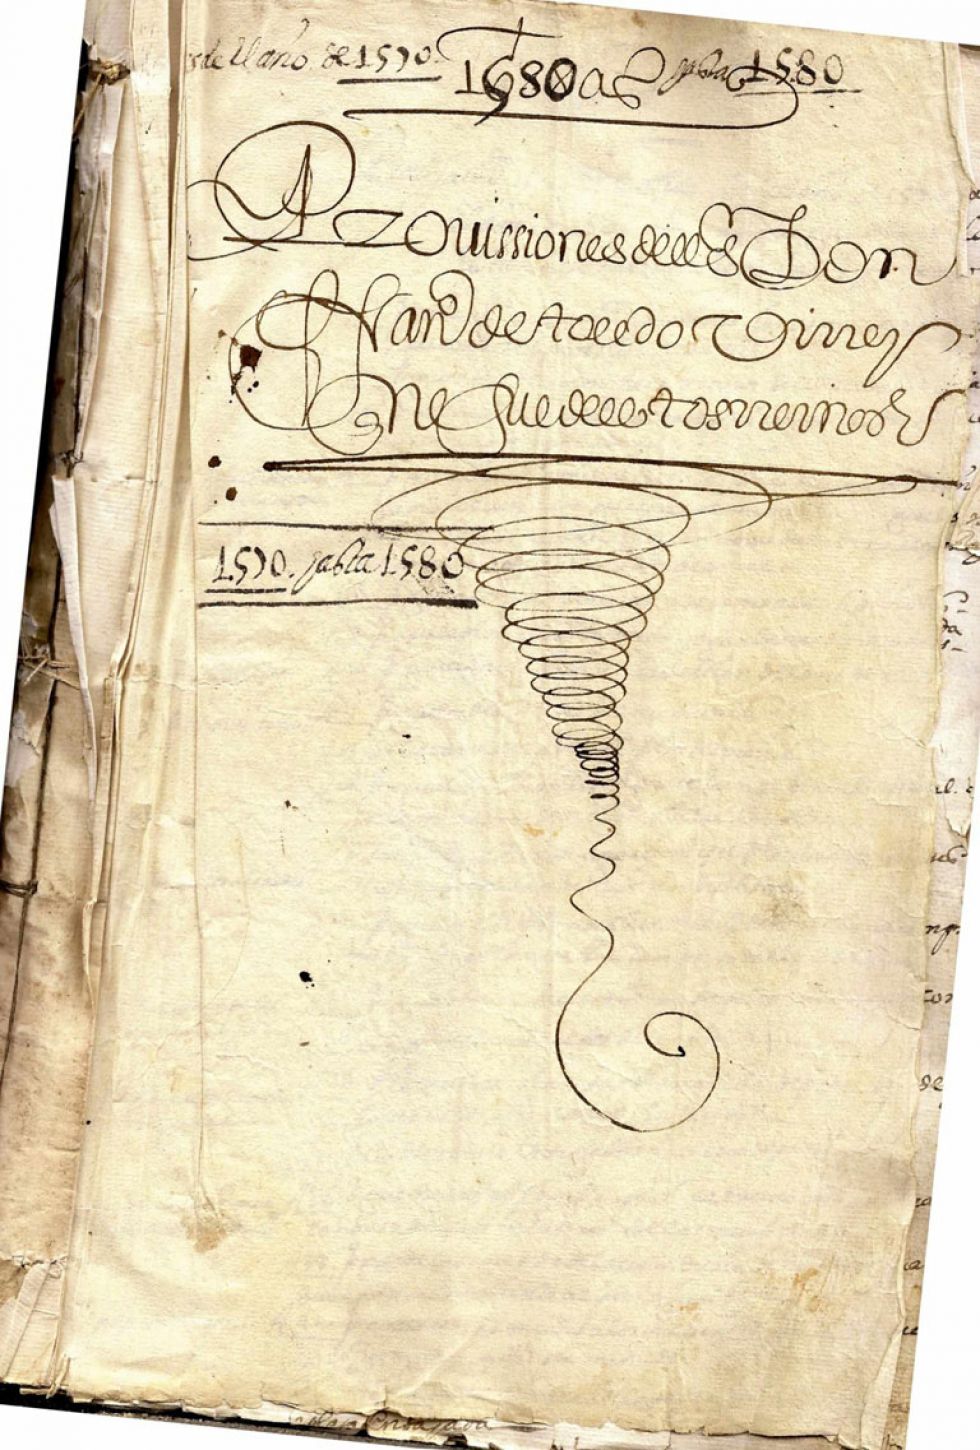 desde el año de 1570. 1680 as hasta 1580
Provissiones del s Don
Franco de toledo Virrey
que fue destos rreinos
1570. hasta 1580